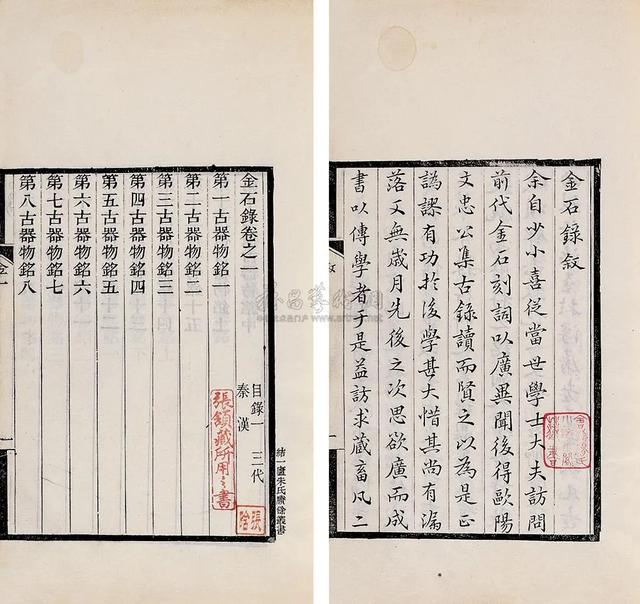 金石錄敘
余自少小喜從當世學士大夫訪問
前代金石刻詞以廣異聞後得歐陽
文忠公集古錄讀而賢之以為是正
譌謬有功於後學甚大惜其尚有漏
落又無歲月先後之次思欲廣而成
書以傳學者于是益訪求藏畜凡二
金石錄卷之一
目錄一 三代
秦漢
第一古器物銘一
第二古器物銘二
第三古器物銘三
第四古器物銘四
第五古器物銘五
第六古器物銘六
第七古器物銘七
第八古器物銘八
結一廬朱氏賸餘叢書
張頷藏所用之書